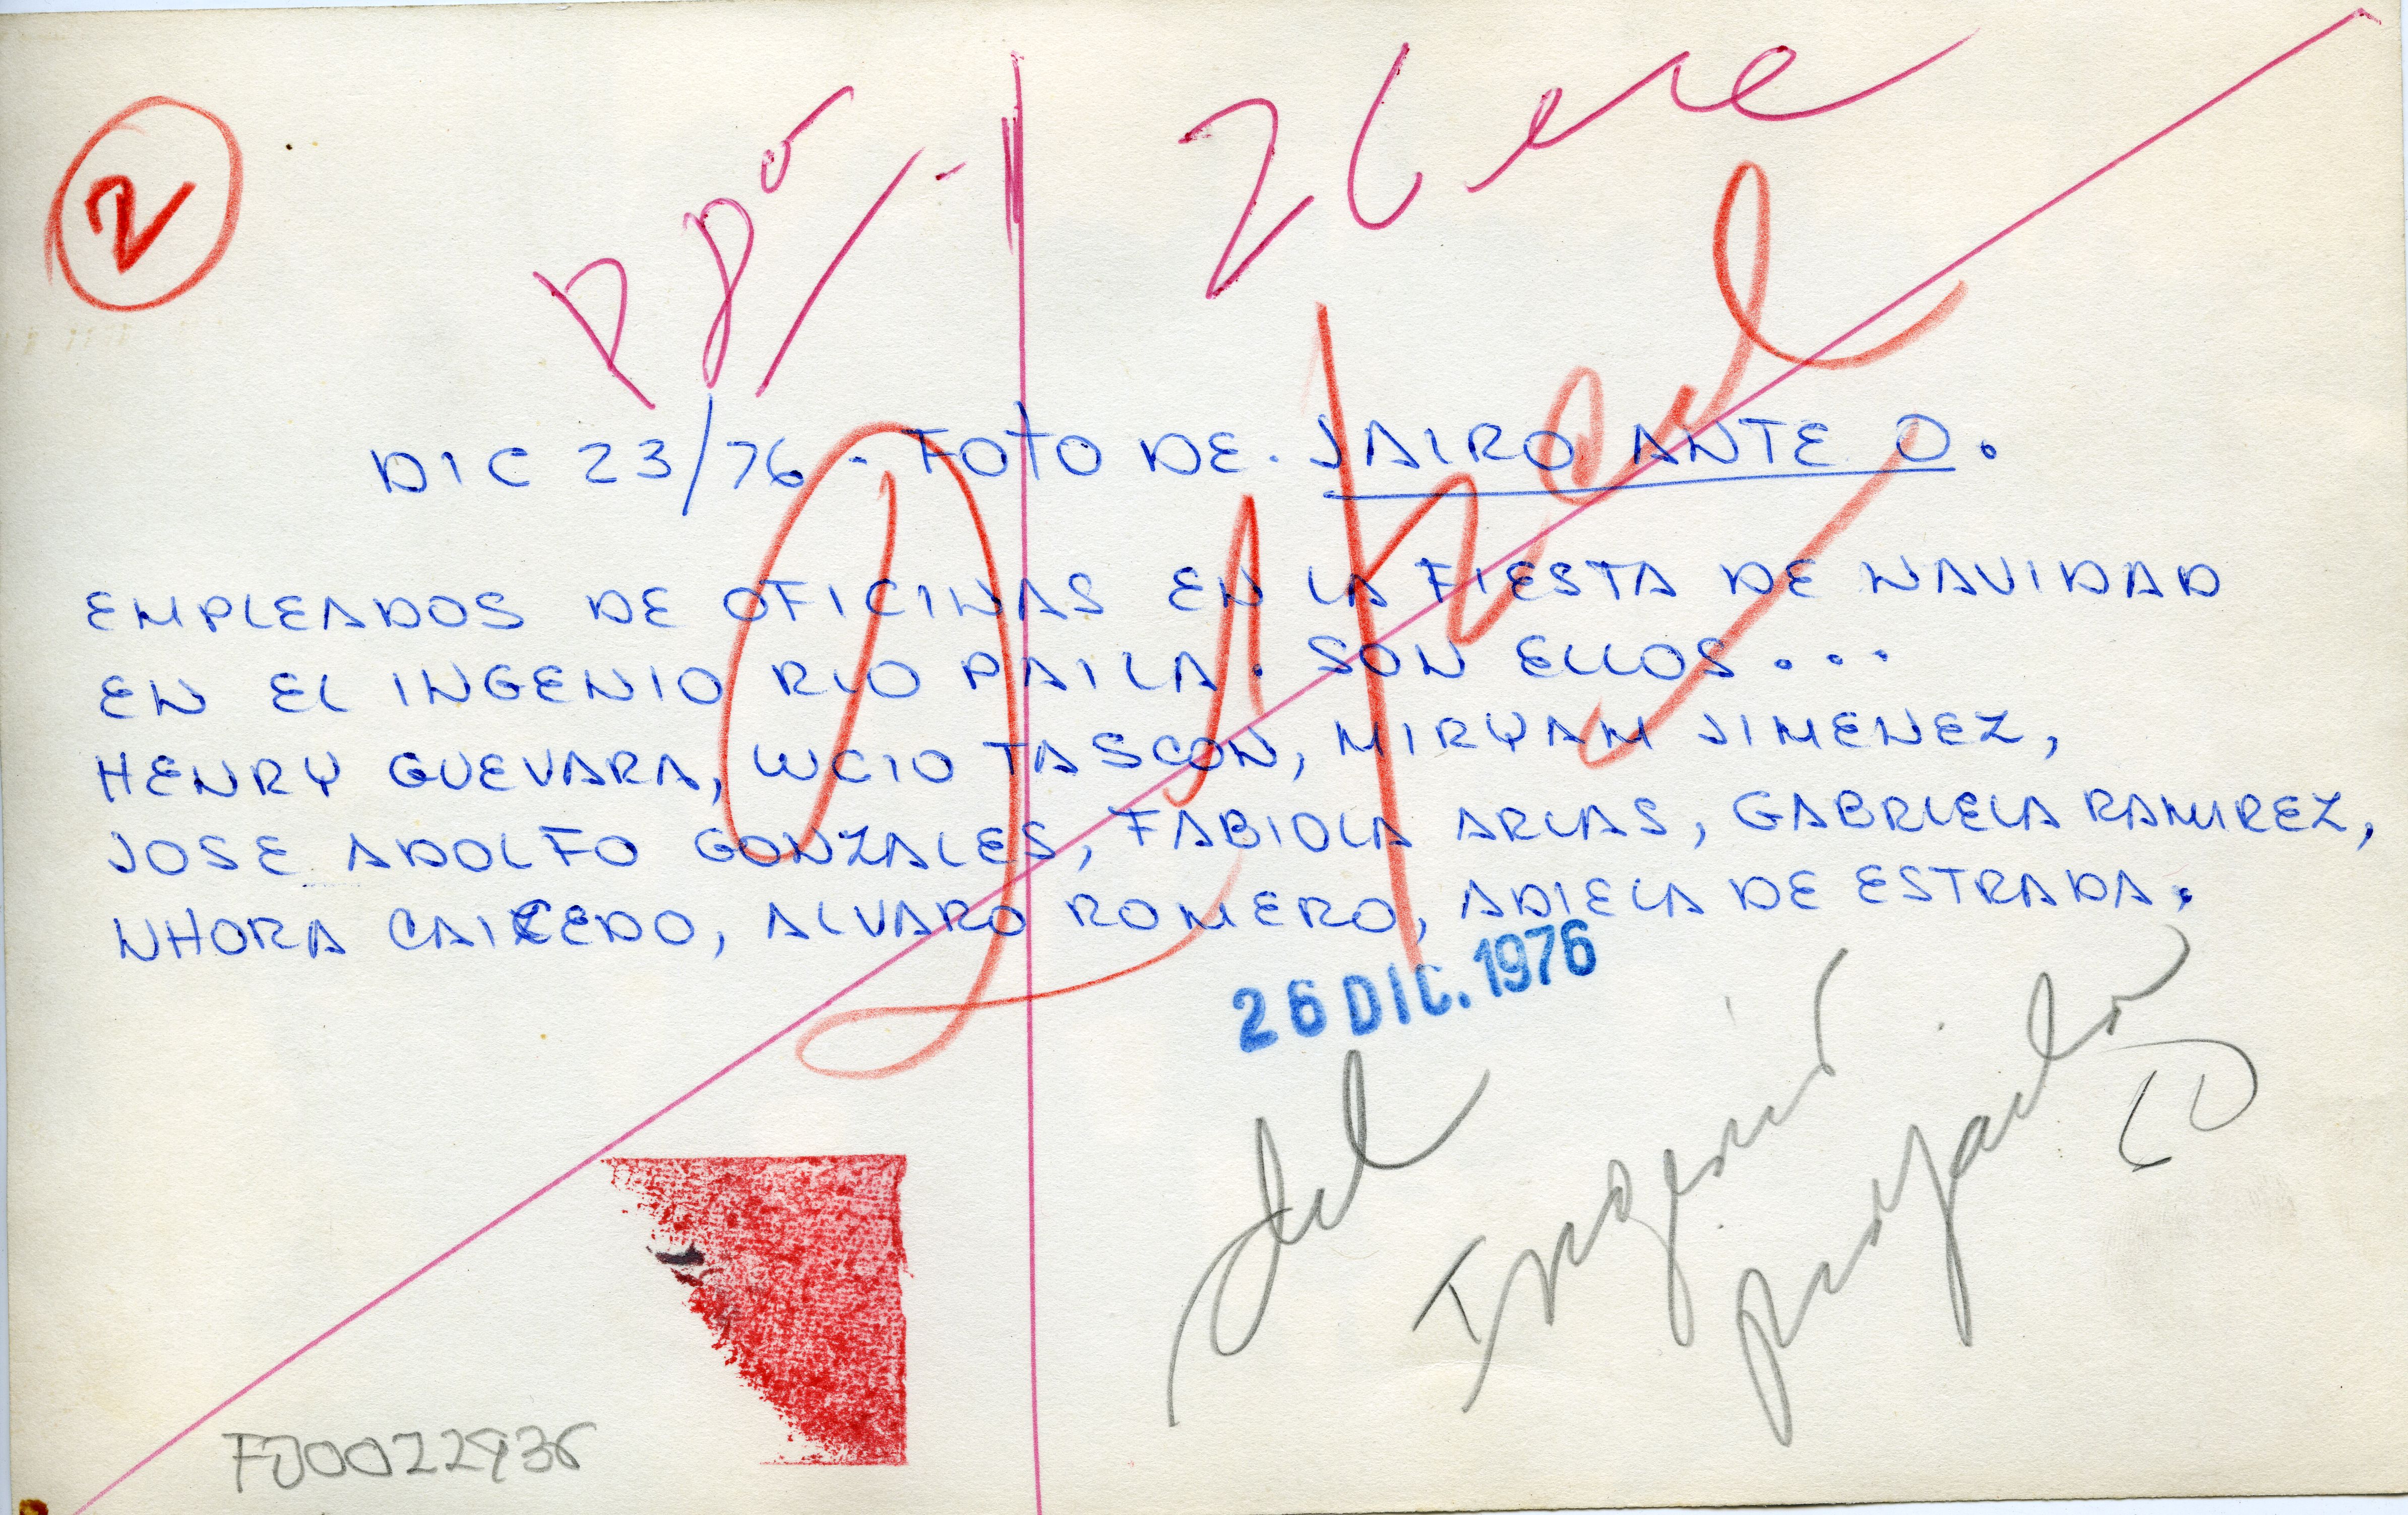 2
DIC 23/76 - FOTO DE. JAIRO ANTE O.
EMPLEADOS DE OFICINAS EN LA FIESTA DE NAVIDAD
EN EL INGENIO RIO PAILA. SON ELLOS...
HENRY GUEVARA, LUCIO TASCON, MIRYAM JIMENEZ,
JOSE ADOLFO GONZALES, FABIOLA ARIAS, GABRIELA RAMIREZ,
NHORA CAICEDO, ALVARO ROMERO, ADIELA DE ESTRADA.
26 DIC. 1976
del
Ingenio